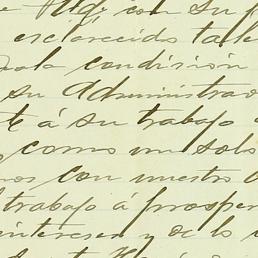 con su
esclarecido tale
condición
su Administrac
á su trabajo
como un solo
con nuestro
trabajo á prosper
intereses y de lo